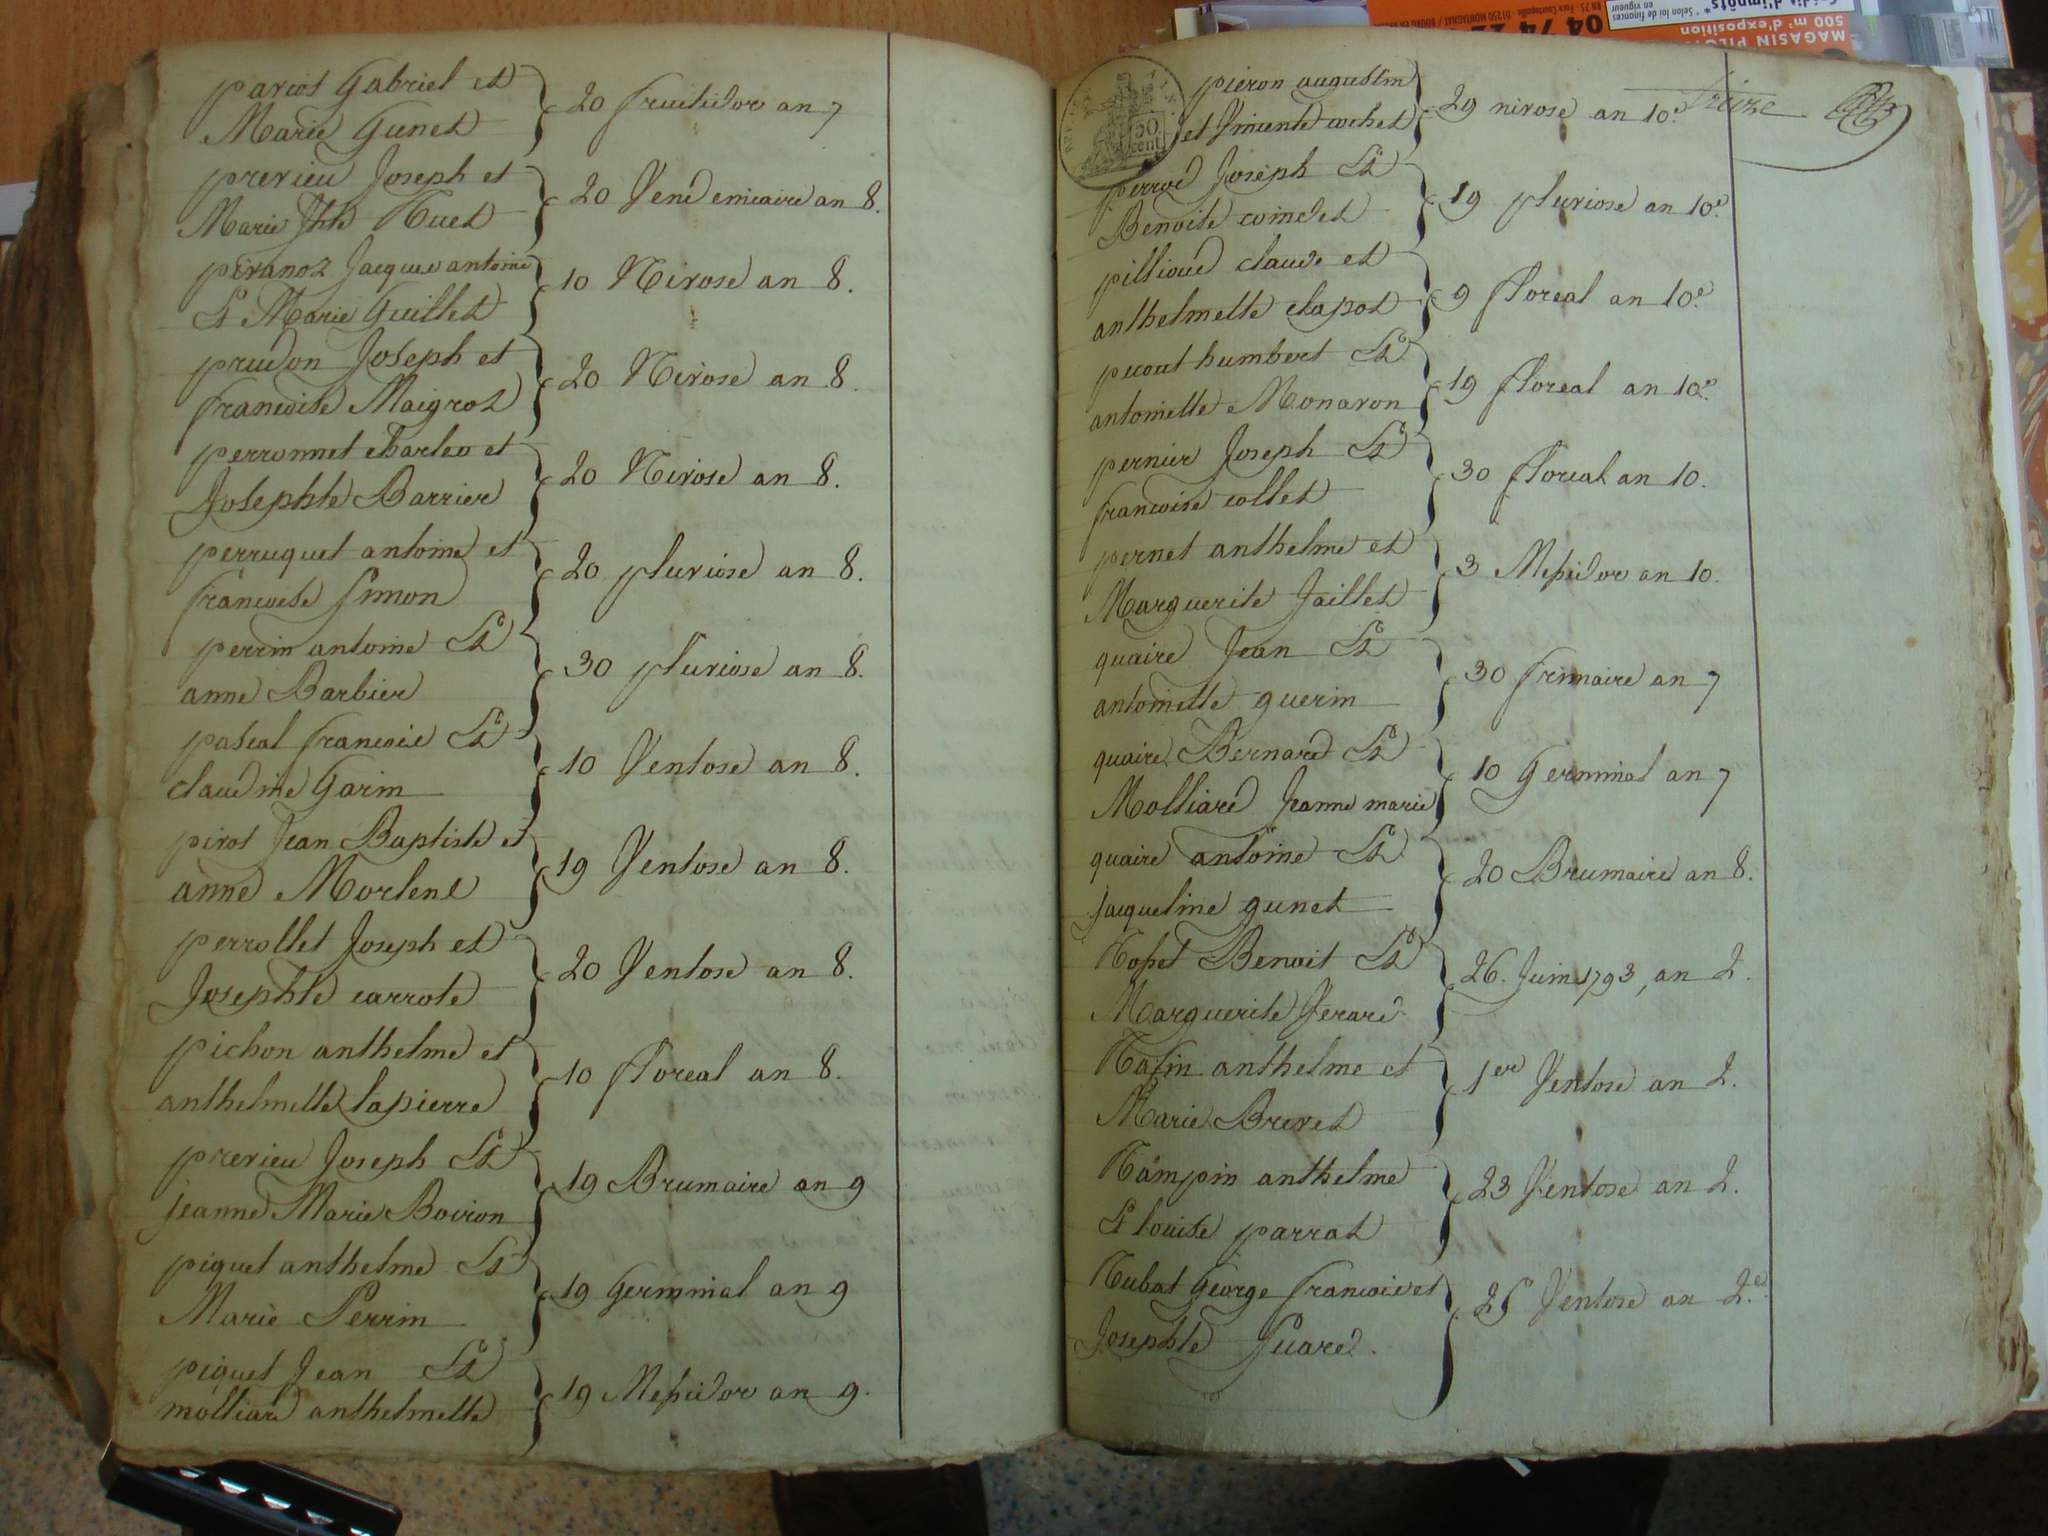 pariot Gabriel et
Marie Gunet
20 fructidor an 7
prerieu Joseph et
Marie Jhte Ruet
20 Vendemiaire an 8.
piranoz Jacques antoine
Et Marie Guillet
10 Nivose an 8.
prudon Joseph et
francoise Maigrot
20 Nivose an 8.
perronnet charles et
Josephte Barrier
20 Nivose an 8.
perruquet antoine et
francoise Simon
20 pluviose an 8.
perrin antoine Et
anne Barbier
30 pluviose an 8.
pascal francois Et
claudine Garin
10 Ventose an 8.
pirot Jean Baptiste et
anne Morlene
19 Ventose an 8.
perrollet Joseph et
Josephte carrote
20 Ventose an 8.
pichon anthelme et
anthelmette lapierre
10 floreal an 8.
prerieu Joseph Et
jeanne Marie Boviron
19 Brumaire an 9
piquet anthelme Et
Marie Perrin
19 Germinal an 9
piquet Jean Et
molliard anthelmette
19 Messidor an 9.
50
cent
pieron augustin
et Vincente cochet
29 nivose an 10e
Treize
perrod Joseph Et
Benoite coindet
19 pluviose an 10e
pillioud claude et
anthelmette chapot
9 floreal an 10e
picout humbert Et
antoinette Monavon
19 floreal an 10e
pernier Joseph Et
francoise collet
30 floreal an 10.
pernet anthelme et
Marguerite Jaillet
3 Messidor an 10.
quaire Jean Et
antoinette guerin
30 frimaire an 7
quaire Bernard Et
Molliard Jeanne marie
10 Germinal an 7
quaire antoine Et
jacqueline gunet
20 Brumaire an 8.
Rosset Benoit Et
Marguerite Verard
26. Juin 1793, an 2.
Rafin anthelme et
Marie Brevet
1er Ventose an 2.
Rampin anthelme
Et louise parrat
23 Ventose an 2.
Rubat George francois et
Josephte Suard.
25 Ventose an 2e
MAGASIN PILO
500 m² d'exposition
* Selon loi de finances
en vigueur
04 74 2